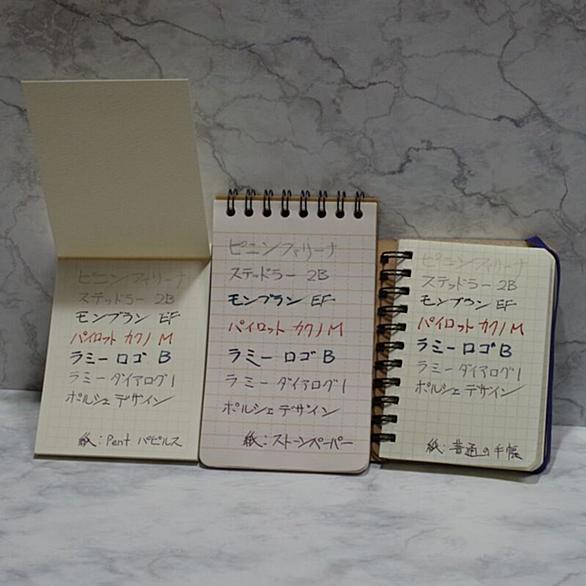 ピニンファリーナ
ステッドラー 2B
モンブラン EF
パイロット カクノ M
ラミー ロゴ B
ラミー ダイアログ1
ポルシェデザイン
紙：Pent パピルス
ピニンファリーナ
ステッドラー 2B
モンブラン EF
パイロット カクノ M
ラミー ロゴ B
ラミー ダイアログ1
ポルシェデザイン
紙：ストーンペーパー
ピニンファリーナ
ステッドラー 2B
モンブラン EF
パイロット カクノ M
ラミー ロゴ B
ラミー ダイアログ1
ポルシェデザイン
紙：普通の手帳